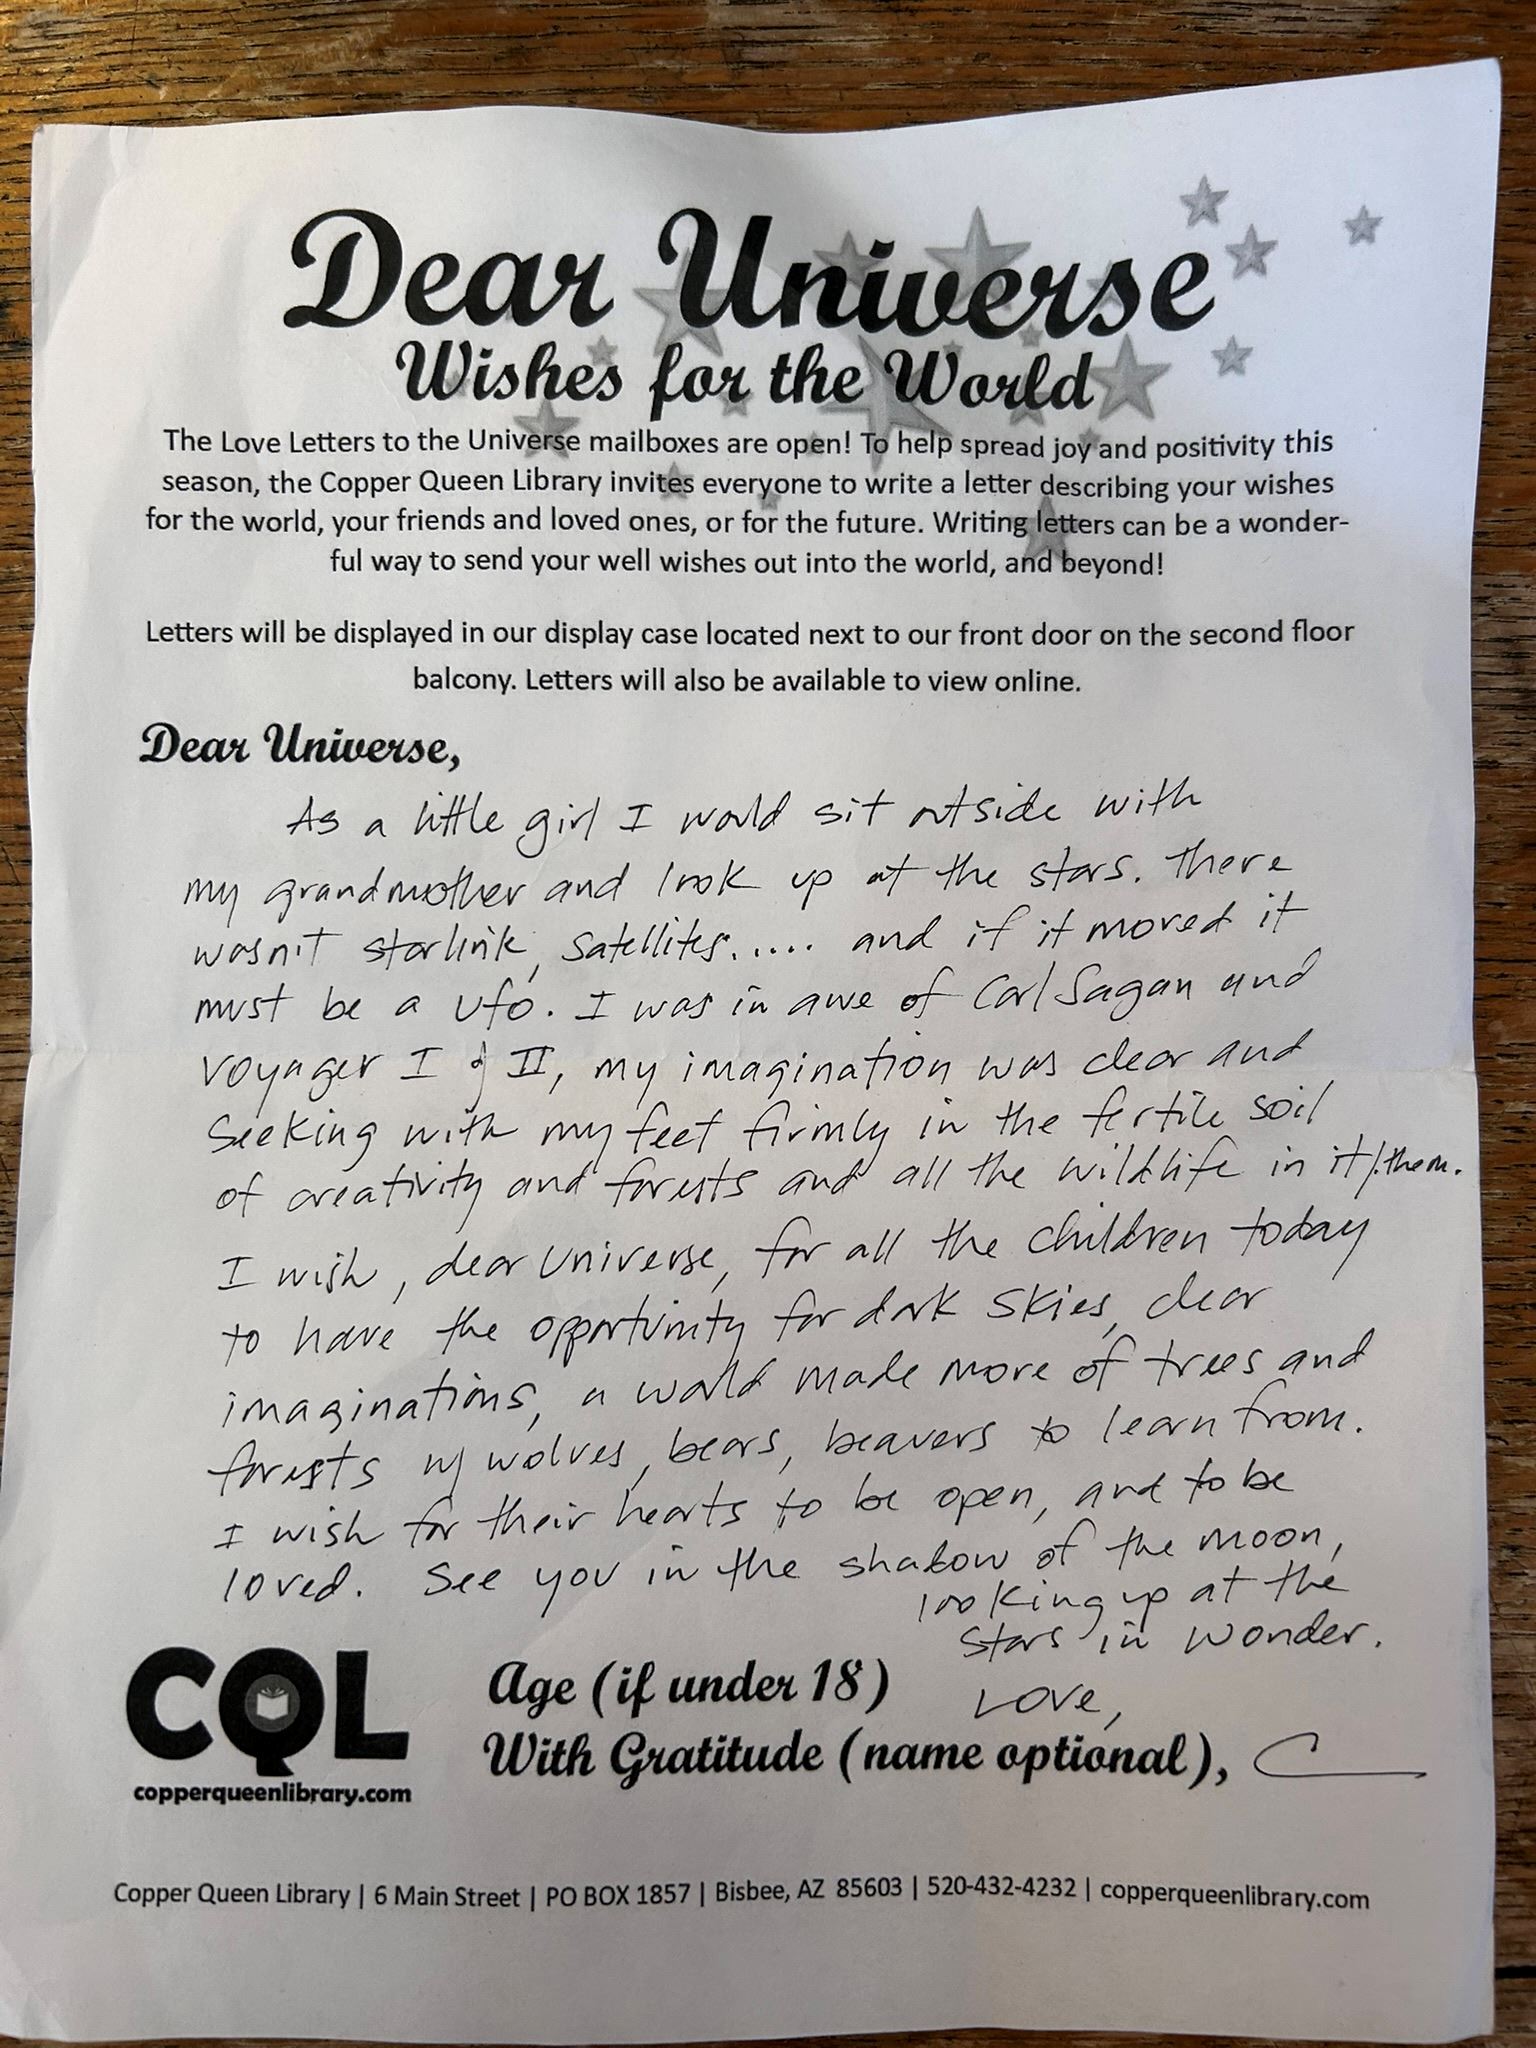 Dear Universe
Wishes for the World
The Love Letters to the Universe mailboxes are open! To help spread joy and positivity this
season, the Copper Queen Library invites everyone to write a letter describing your wishes
for the world, your friends and loved ones, or for the future. Writing letters can be a wonder-
ful way to send your well wishes out into the world, and beyond!
Letters will be displayed in our display case located next to our front door on the second floor
balcony. Letters will also be available to view online.
Dear Universe,
As a little girl I would sit outside with
my grandmother and look up at the stars. There
wasn't starlink, satellites..... and if it moved it
must be a ufo. I was in awe of Carl Sagan and
Voyager I & II, my imagination was clear and
seeking with my feet firmly in the fertile soil
of creativity and forests and all the wildlife in it/them.
I wish, dear Universe, for all the children today
to have the opportunity for dark skies, clear
imaginations, a world made more of trees and
forests w/ wolves, bears, beavers to learn from.
I wish for their hearts to be open, and to be
loved. See you in the shadow of the moon,
looking up at the
stars in wonder.
CQL
copperqueenlibrary.com
Age (if under 18)
Love,
With Gratitude (name optional), C
Copper Queen Library | 6 Main Street | PO BOX 1857 | Bisbee, AZ 85603 | 520-432-4232 | copperqueenlibrary.com